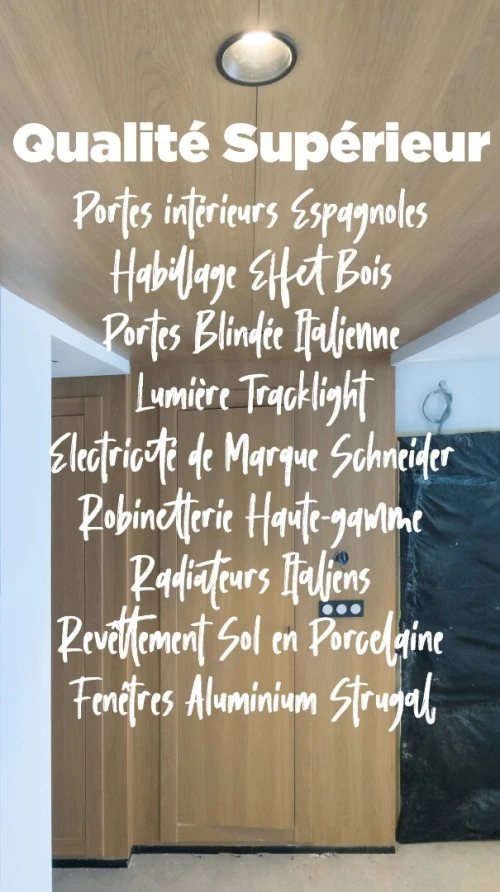 Qualité Supérieur
Portes intérieurs Espagnoles
Habillage Effet Bois
Portes Blindée Italienne
Lumière Tracklight
Electricité de Marque Schneider
Robinetterie Haute-gamme
Radiateurs Italiens
Revêttement Sol en Porcelaine
Fenêtres Aluminium Strugal